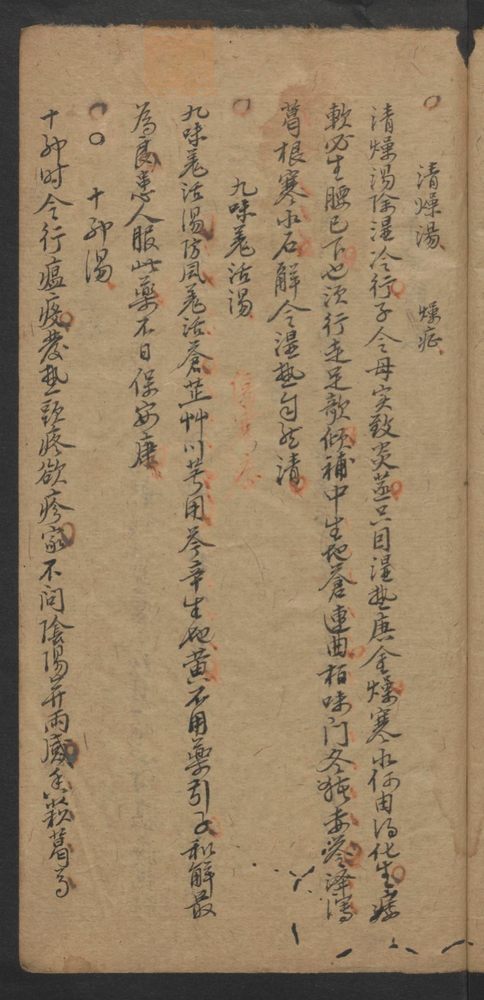 清燥湯 燥症
清燥湯除湿冷行子令母实致炎蒸只因湿热庚金燥寒水何由得化生痿
軟必生腰已下也須行走足欹倾補中生地蒼連曲柏味门冬猪赤苓澤瀉
葛根寒水石解令湿热自然清
九味羗活湯
九味羗活湯防風羗活蒼芷艸川芎用芩辛生地黄不用藥引子和解最
為良患人服此藥不日保安康
十神湯
十神时令行瘟疫發热頭疼欲疹家不问陰陽并両感香蘇葛